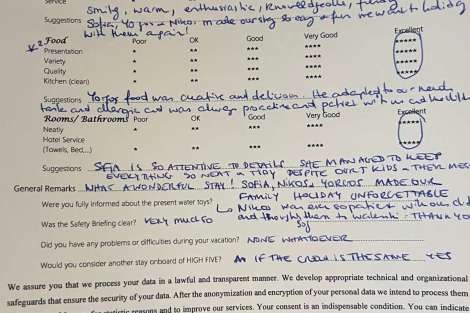 Service
smiley, warm, enthusiastic, knowledgeable,
Suggestions Sofia, Yorgos + Nikos made our stay so easy + fun we want to holiday
with them again!
x 2 Food Poor OK Good Very Good Excellent
Presentation * ** *** **** *****
Variety * ** *** **** *****
Quality * ** *** **** *****
Kitchen (clean) * ** *** **** *****
Suggestions Yorgos food was creative and delicious. He adapted to our needs
taste and allergies and was always proactive and patient with us and the kids
Rooms/ Bathrooms Poor OK Good Very Good Excellent
Neatly * ** *** **** *****
Hotel Service
(Towels, Bed...) * ** *** **** *****
Suggestions SOFIA IS SO ATTENTIVE TO DETAILS SHE MANAGED TO KEEP
EVERYTHING SO NEAT & TIDY DESPITE OUR 7 KIDS & THEIR MESS
General Remarks WHAT A WONDERFUL STAY! SOFIA, NIKOS & YORGOS MADE OUR
FAMILY HOLIDAY UNFORGETTABLE
Were you fully informed about the present water toys? Nikos was ever so patient with our
Was the Safety Briefing clear? VERY MUCH SO and THANK YOU
Did you have any problems or difficulties during your vacation? NONE WHATSOEVER
Would you consider another stay onboard of HIGH FIVE? IF THE CREW IS THE SAME YES
We assure you that we process your data in a lawful and transparent manner. We develop appropriate technical and organizational
safeguards that ensure the security of your data. After the anonymization and encryption of your personal data we intend to process them
reasons and to improve our services. Your consent is an indispensable condition. You can indicate